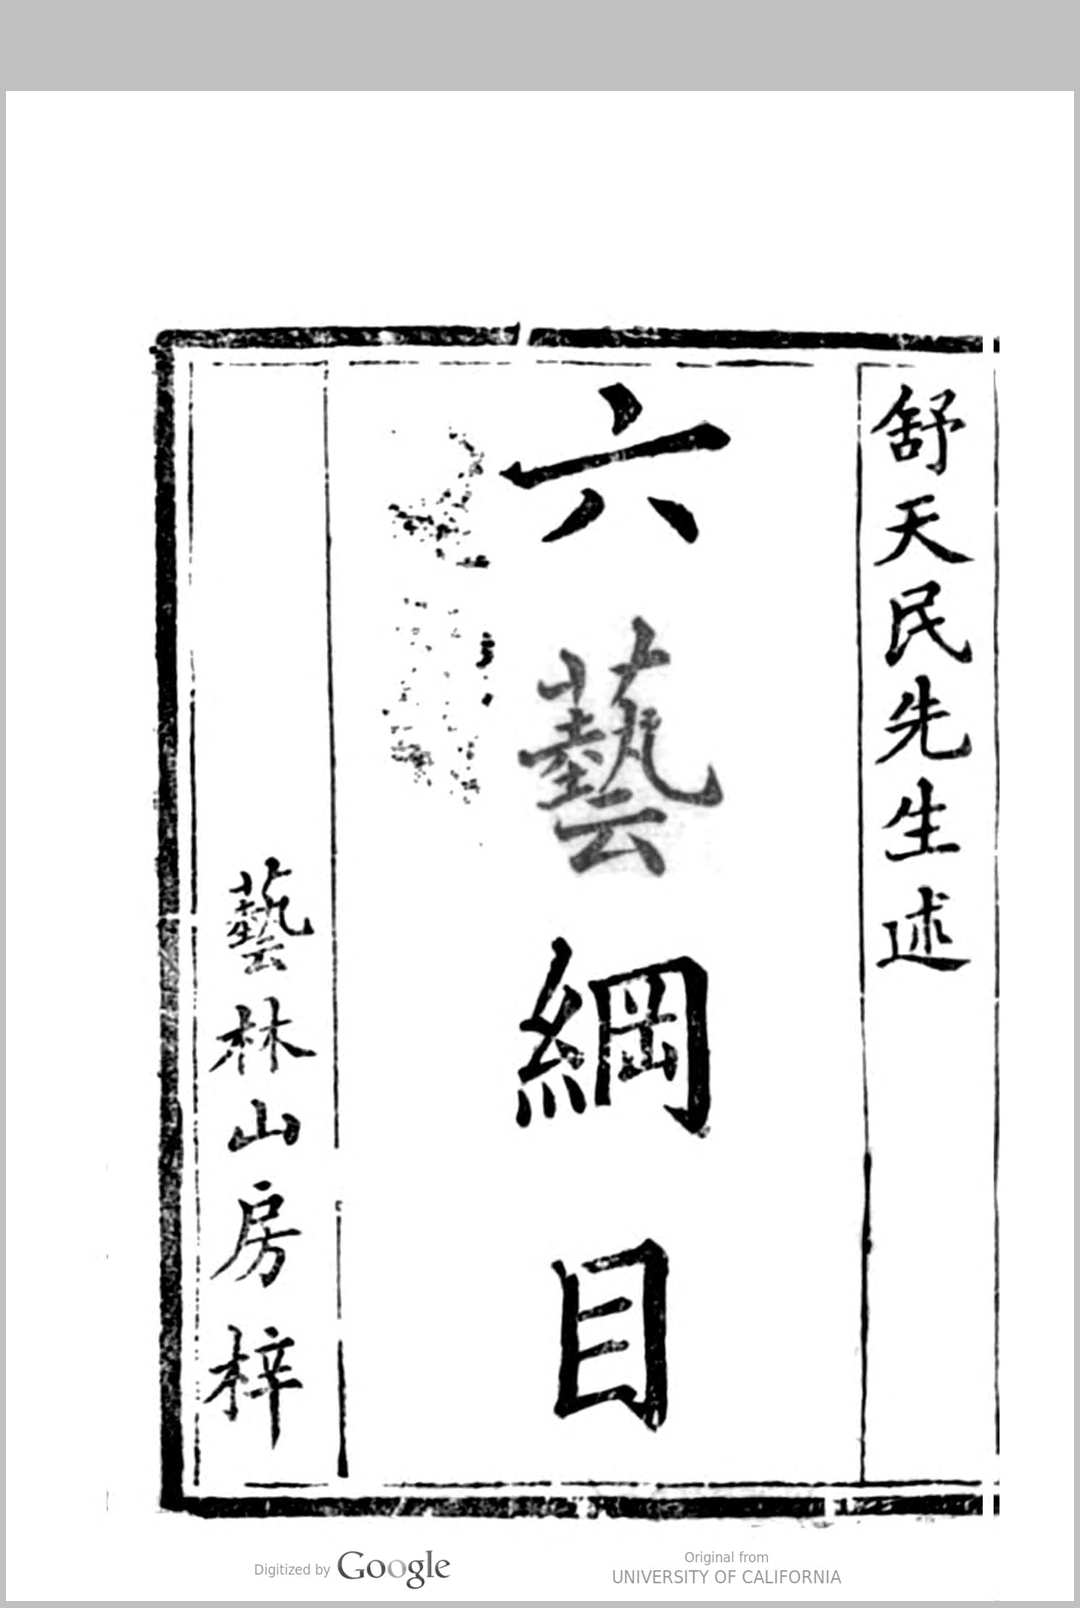 舒天民先生述
六藝綱目
藝林山房梓
Digitized by Google
Original from
UNIVERSITY OF CALIFORNIA